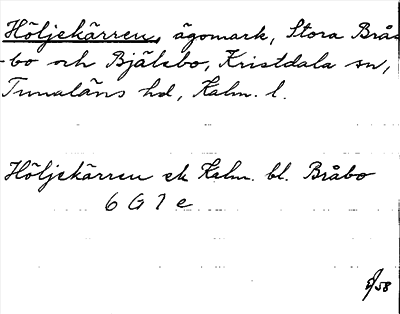 Höljekärren, ägomark, Stora Brå-
bo och Bjälebo, Kristdala sn,
Tunaläns hd, Kalm. l.
Höljekärren ek Kalm. bl. Bråbo
6 G 7 e
58